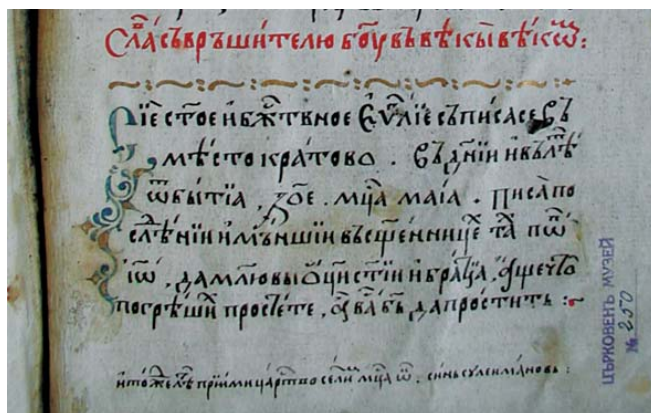 Сла́ съврьши́телю бо҃у въ вѣ́кы вѣ́кѡⷨ:
Сїе ст҃ое и бж҃тъвное Єѵⷢ҇лїе съписа се въ
мѣсто кратово . Въ дн҃їи и въ лѣⷮ
ѿ бытїа , ҂зо҃е . мцⷭ҇а маїа . писа по
слѣднїи и мьншїи въ сщ҃еннице
їѡ҃ , да млю вы ѻц҃и ст҃їи и братїа , аще что
погрѣши простѣте , а ва б҃ь да простить :
и тожⷣе лѣⷮ прїими царⷭ҇тво селиⷨ мцⷭ҇а . синь сулеимановь :
ЦЪРКОВЕНЪ МУЗЕЙ
№ 250